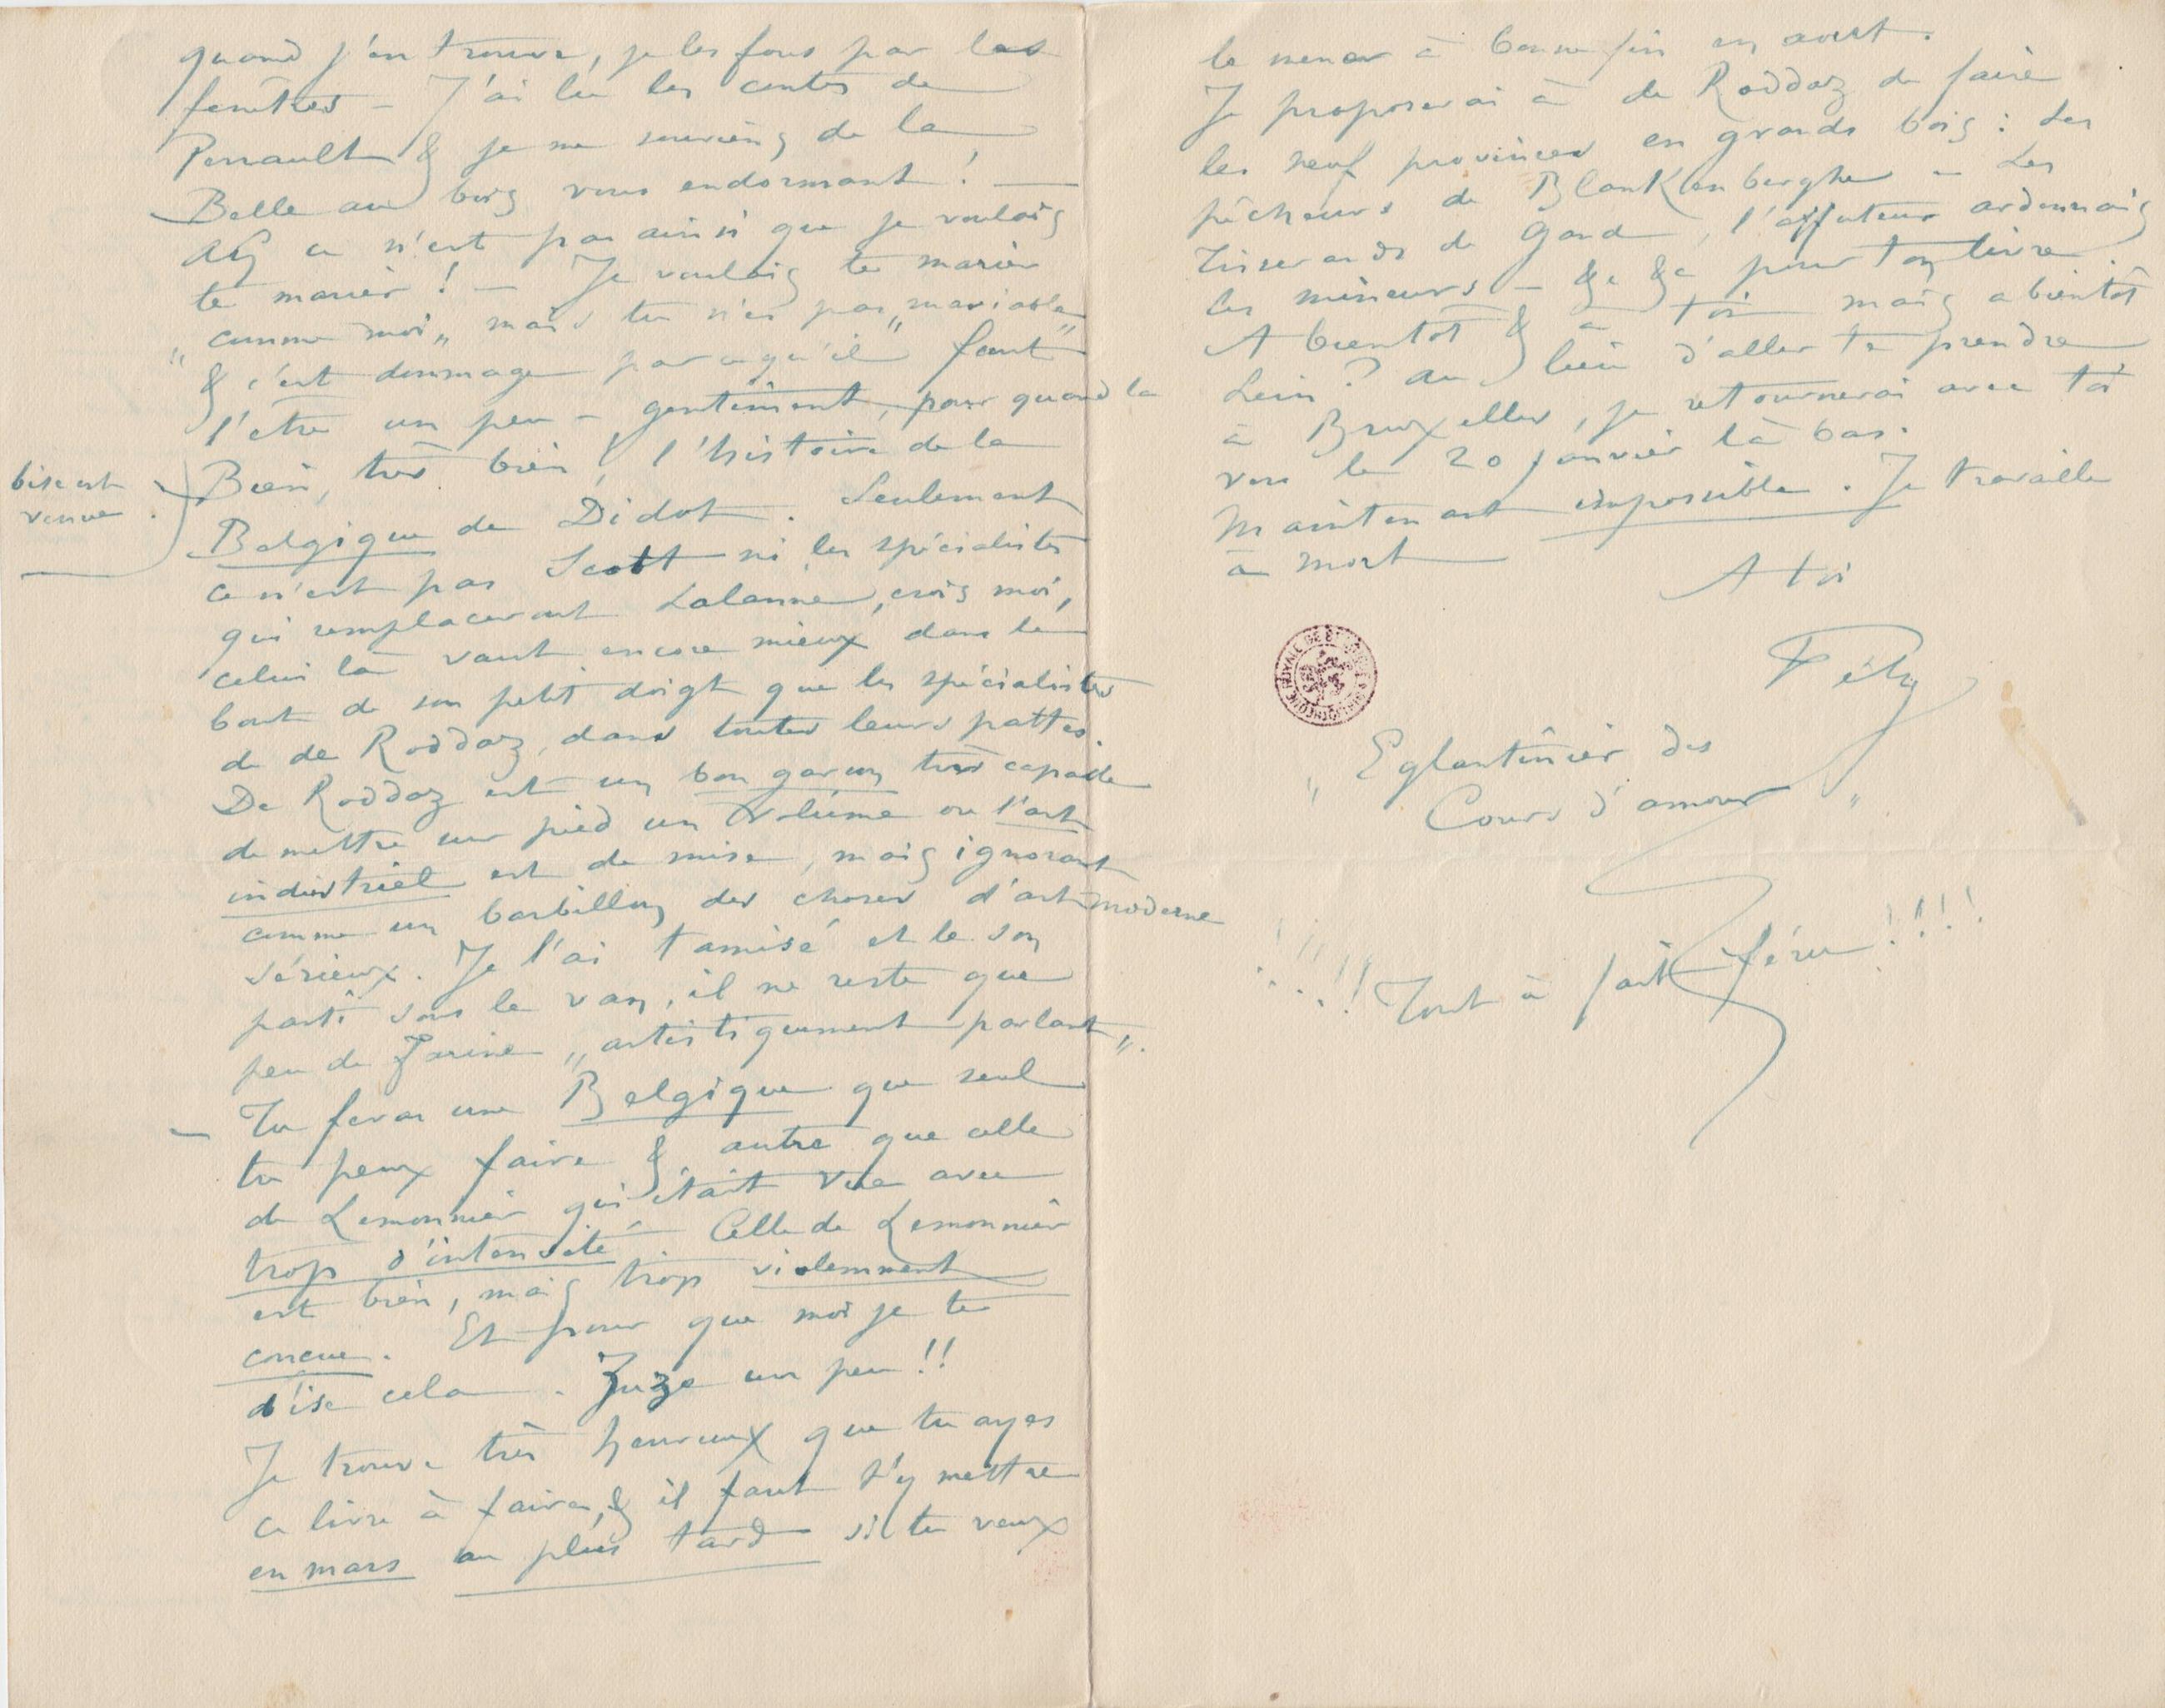 quand j'en trouve, je les fous par les
fenêtres – J'ai lu les contes de
Perrault & je me souviens de la
Belle au bois vous endormant ! –
Ah ce n'est pas ainsi que je voulais
te marier ! – Je voulais te marier
„ comme moi „ mais tu n'es pas „ mariable „
& c'est dommage parcequ'il faut
l'être un peu – gentîment, pour quand la
bise est
venue .
Bien, très bien ! l'histoire de la
Belgique de Didot . Seulement
ce n'est pas Scott ni les spécialistes
qui remplaceront Lalanne, crois moi,
celui là vaut encore mieux dans le
bout de son petit doigt que les spécialistes
de de Roddaz, dans toutes leurs pattes.
De Roddaz est un bon garçon très capable
de mettre sur pied un volume ou l'art
industriel est de mise, mais ignorant
comme un barbillon des choses d'art moderne
sérieux. Je l'ai tamisé et le son
parti sous le van, il ne reste que
peu de farine „ artistiquement parlant „.
– Tu feras une Belgique que seul
tu peux faire & autre que celle
de Lemonnier qui était vue avec
trop d'intensité – Celle de Lemonnier
est bien, mais trop violemment
concue. Et pour que moi je te
dise cela . Juge un peu !!
Je trouve très heureux que tu ayes
ce livre à faire, & il faut s'y mettre
en mars au plus tard si tu veux
le mener à bonne fin en août.
Je proposerai à de Roddaz de faire
les neuf provinces en grands bois : Les
pêcheurs de Blankenberghe – Les
Tisserands de Gand, l'affuteur ardennais
les mineurs – &c &c pour ton livre.
A bientôt & à toi mais a bientôt
Loin ? au lieu d'aller te prendre
à Bruxelles, je retournerai avec toi
vers le 20 janvier là bas.
Maintenant impossible. Je travaille
à mort
A toi
Fély
„ Eglantinier des
Cours d'amour „
!!!!! Tout à fait féru !!!!